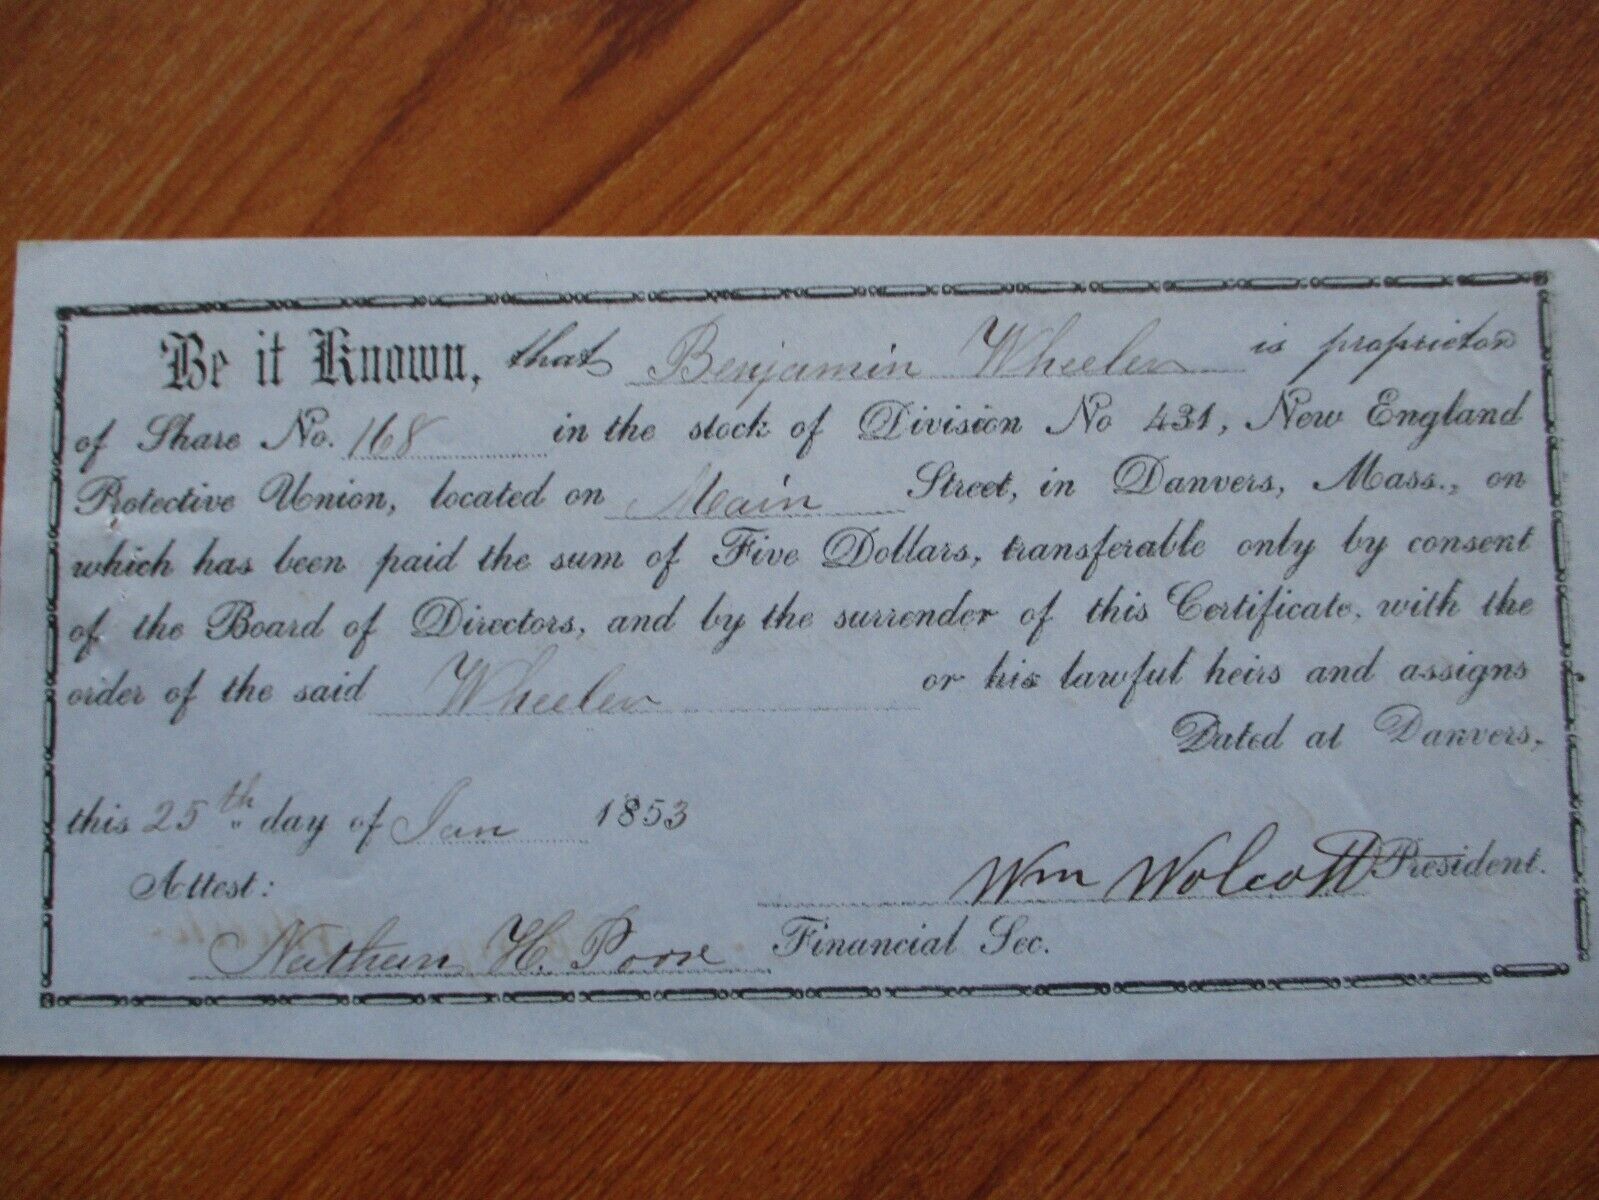 Be it Known, that Benjamin Wheeler is proprietor
of Share No. 168 in the stock of Division No 431, New England
Protective Union, located on Main Street, in Danvers, Mass., on
which has been paid the sum of Five Dollars, transferable only by consent
of the Board of Directors, and by the surrender of this Certificate, with the
order of the said Wheeler or his lawful heirs and assigns
Dated at Danvers,
this 25th day of Jan 1853
Attest:
Wm Wolcott President.
Nathan H. Poore Financial Sec.